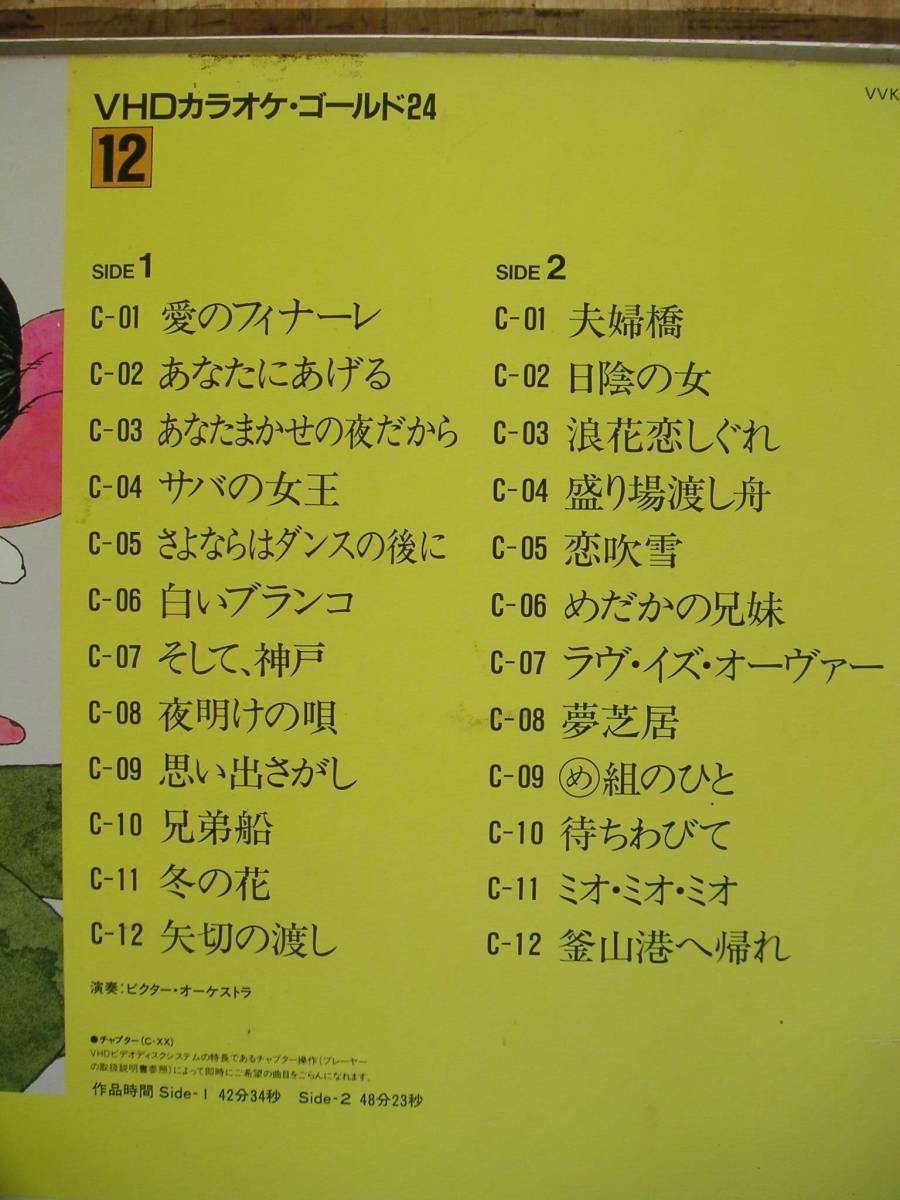 VHDカラオケ・ゴールド24
VVK
12
SIDE 1
C-01 愛のフィナーレ
C-02 あなたにあげる
C-03 あなたまかせの夜だから
C-04 サバの女王
C-05 さよならはダンスの後に
C-06 白いブランコ
C-07 そして、神戸
C-08 夜明けの唄
C-09 思い出さがし
C-10 兄弟船
C-11 冬の花
C-12 矢切の渡し
SIDE 2
C-01 夫婦橋
C-02 日陰の女
C-03 浪花恋しぐれ
C-04 盛り場渡し舟
C-05 恋吹雪
C-06 めだかの兄妹
C-07 ラヴ・イズ・オーヴァー
C-08 夢芝居
C-09 め組のひと
C-10 待ちわびて
C-11 ミオ・ミオ・ミオ
C-12 釜山港へ帰れ
演奏:ビクター・オーケストラ
●チャプター(C-XX)
VHDビデオディスクシステムの特長であるチャプター操作(プレーヤー
の取扱説明書参照)によって即時にご希望の曲目をごらんになれます。
作品時間 Side-1 42分34秒 Side-2 48分23秒